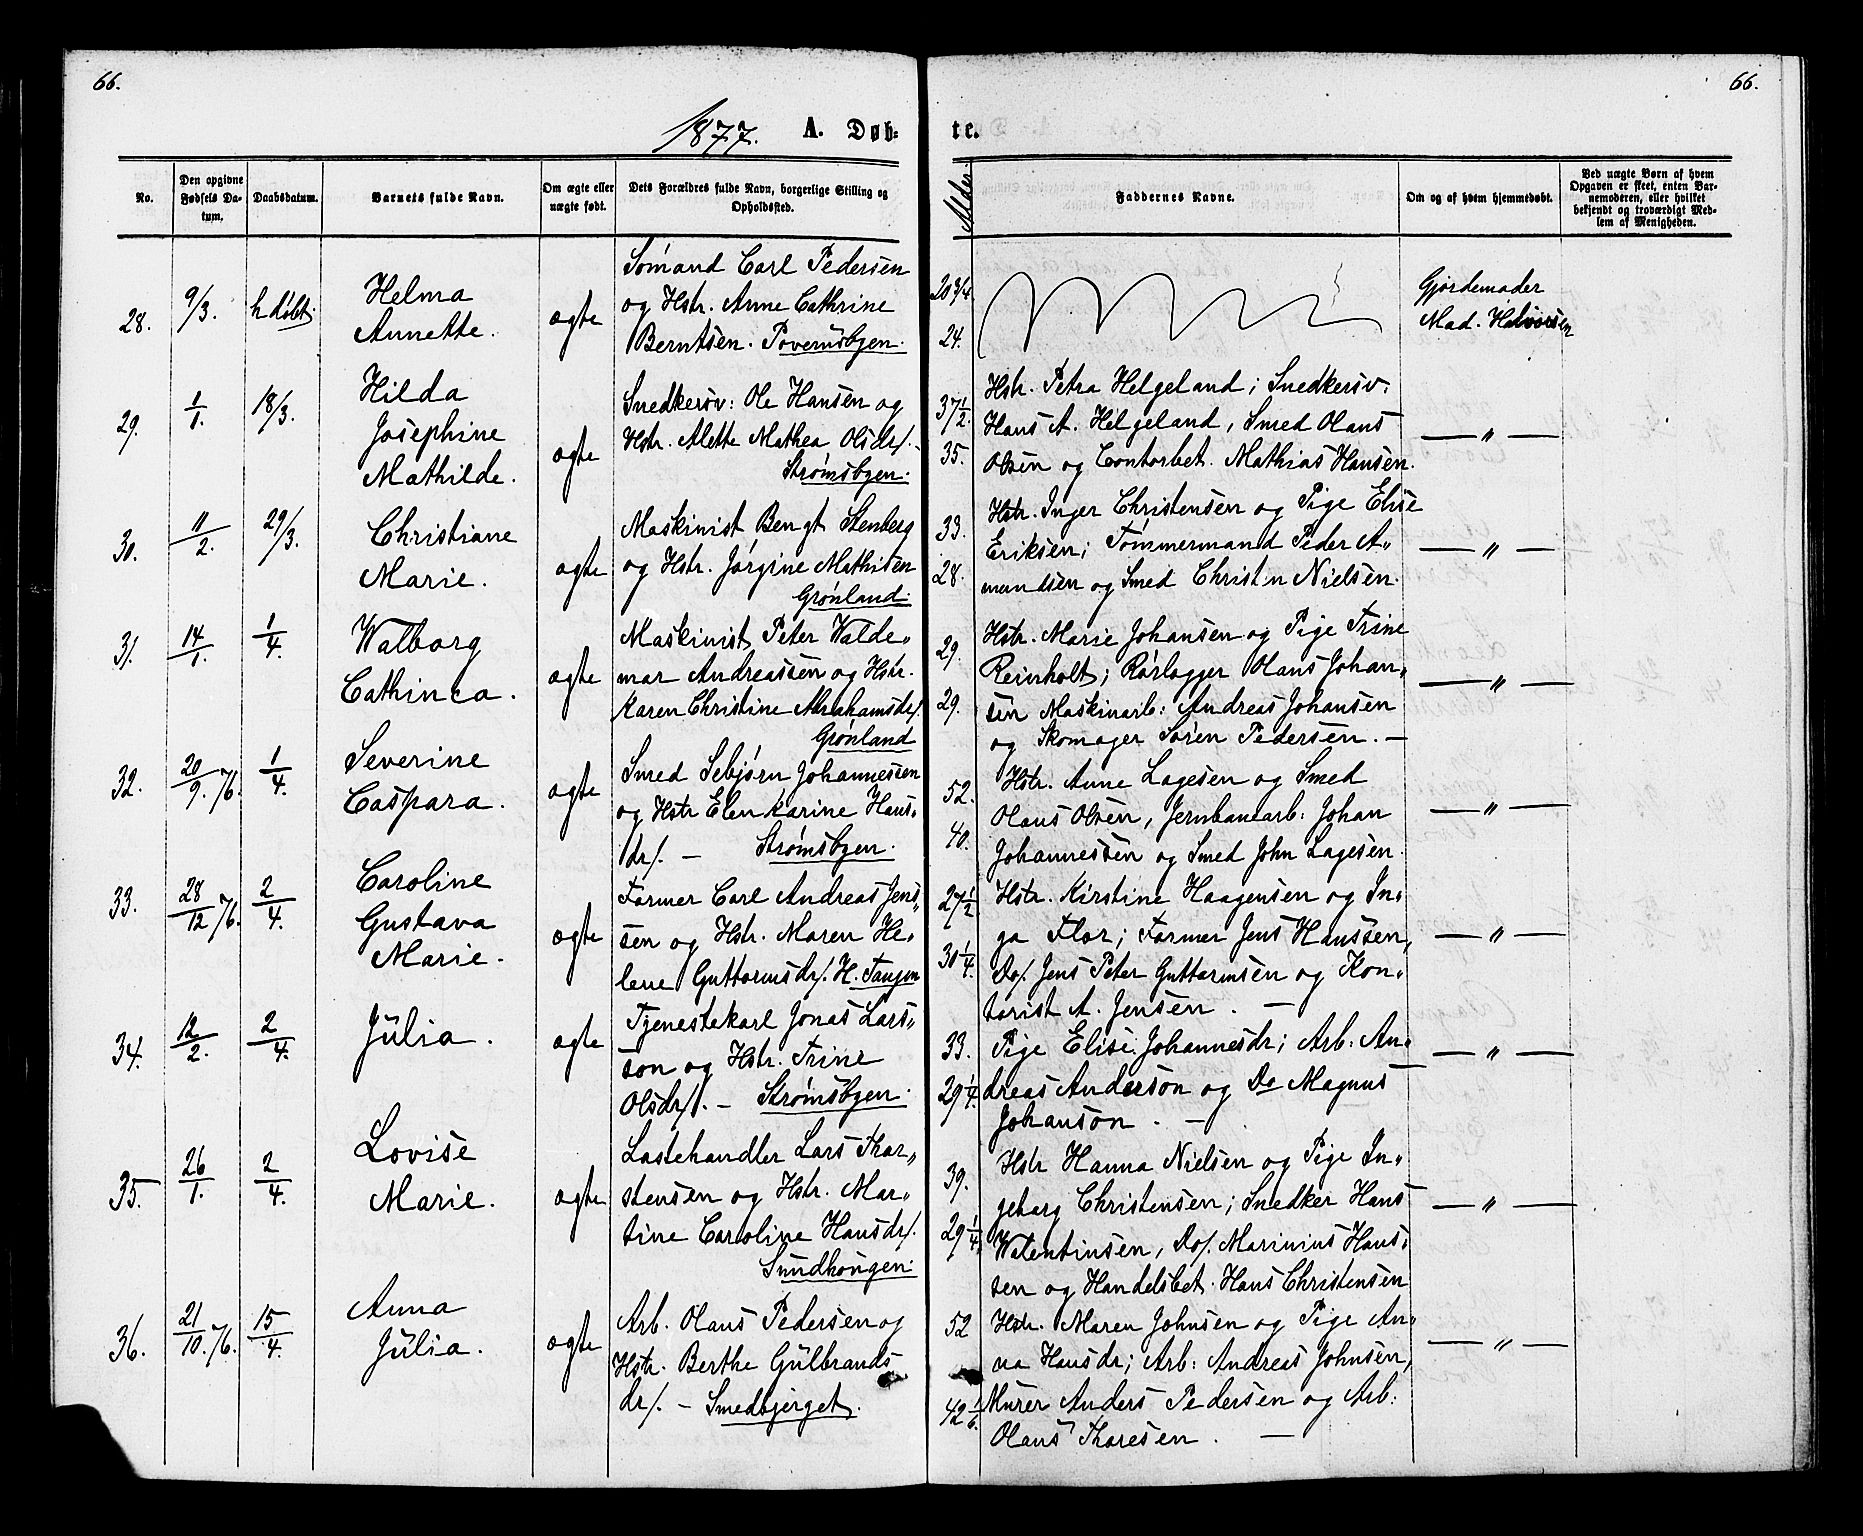 66.
66.
1877. A. Døb-
te.
No.
Den opgivne Fødsels Da-
tum.
Daabsdatum.
Barnets fulde Navn.
Om ægte eller
uægte født.
Dets Forældres fulde Navn, borgerlige Stilling og
Opholdssted.
Alder.
Faddernes Navne.
Om og af hvem hjemmedøbt.
Ved uægte Børn af hvem
Opgaven er skeet, enten Bar-
nemoderen, eller hvilket
bekjendt og troværdigt Med-
lem af Menigheden.
28. 9/3. h døbt.
Helma
Annette.
ægte
Sømand Carl Pedersen
og Hstr. Anne Cathrine
Berntsen. Poverudsbyen.
20 3/4
24.
Gjordemoder
Mad. Halvorsen
29. 1/1. 18/3.
Hilda
Josephine
Mathilde.
ægte
Snedkersv: Ole Hansen og
Hstr. Alette Mathea Olsdr/.
Strømsbyen.
37 1/2
35.
Hstr. Petra Helgeland; Snedkersv.
Hans A. Helgeland, Smed Olaus
Olsen og Contorbet. Mathias Hansen.
— " —
30. 11/2. 29/3.
Christiane
Marie.
ægte
Maskinist Bengt Stenberg
og Hstr. Jørgine Mathisen
Grønland.
33.
28.
Hstr. Inger Christensen og Pige Elise
Eriksen; Tømmermand Peder A-
mundsen og Smed Christin Nielsen.
— " —
31. 14/1. 1/4.
Walborg
Cathinca.
ægte
Maskinist Peter Walde-
mar Andreassen og Hstr.
Karen Christine Abrahamsdr/.
Grønland
29.
29.
Hstr. Marie Johansen og Pige Trine
Reinholt; Rørlægger Olaus Johan-
sen Maskinarb: Andreas Johansen
og Skomager Søren Pedersen. —
— " —
32. 20/9. 76. 1/4.
Severine
Caspara.
ægte
Smed Sebjørn Johannessen
og Hstr Elen Karine Hans-
dr/. — Strømsbyen.
52.
40.
Hstr. Anne Lagesen og Smed
Olaus Olsen, Jernbanearb: Johan
Johannessen og Smed John Lagesen.
— " —
33. 28/12 76. 2/4.
Caroline
Gustava
Marie.
ægte
Former Carl Andreas Jens-
sen og Hstr. Maren He-
lene Guttormsdr/. H. Tangen
27 1/2
30 1/4.
Hstr. Kirstine Haagensen og In-
ga Flor; Former Jens Hanssen,
Do/. Jens Peter Guttormsen og Kon-
torist A. Jensen. —
— " —
34. 12/2. 2/4.
Jülia.
ægte
Tjenestekarl Jonas Lars-
son og Hstr. Trine
Olsdr/. — Strømsbyen.
33.
29 1/4.
Pige Elise Johannesdr; Arb: An-
dreas Anderson og Do Magnus
Johanson. —
— " —
35. 26/1. 2/4.
Lovise
Marie.
ægte
Løstehandler Lars Thor-
stensen og Hstr. Mar-
tine Caroline Hansdr/.
Sundhougen.
39.
29 1/4.
Hstr Hanna Nielsen og Pige In-
geborg Christensen; Snedker Hans
Walentinsen, Do/. Marinius Hans-
sen og Handelsbet. Hans Christensen
— " —
36. 21/10. 76. 15/4.
Anna
Jülia.
ægte
Arb. Olaus Pedersen og
Hstr. Berthe Gülbrands-
dr/. — Smedbjerget.
52
42 1/6.
Hstr. Maren Johnsen og Pige An-
na Hansdr; Arb: Andreas Johnsen,
Mürer Anders Pedersen og Arb:
Olaus Thoresen. —
— " —